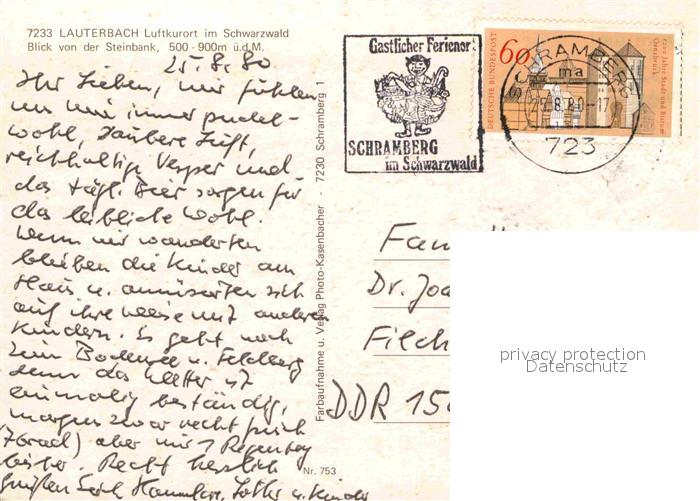 7233 LAUTERBACH Luftkurort im Schwarzwald
Blick von der Steinbank, 500-900m ü.d.M.
25.8.80
Ihr Lieben, wir fühlen
uns wie immer pudel-
wohl, saubere Luft,
reichhaltige Vesper und
das tägl. Bier sorgen für
das leibliche Wohl.
Wenn wir wanderten
bleiben die Kinder am
Haus u. amüsierten sich
auf ihre Weise mit anderen
Kindern. Es geht noch
zum Bodensee u. Feldberg
denn das Wetter ist
einmalig beständig,
morgens zwar recht frisch
(7 Grad) aber nur 1 Regentag
bisher. Recht herzlich
grüßen Euch Hannelore, Lothar u. Kinder
Farbaufnahme u. Verlag Photo-Kasenbacher · 7230 Schramberg 1
Nr. 753
Gastlicher Ferienort
SCHRAMBERG
im Schwarzwald
DEUTSCHE BUNDESPOST
60
1200 Jahre Stadt und Bistum
Osnabrück
SCHRAMBERG
ma
8.80-17
723
Fam
Dr. Joa
Filch
DDR 150
privacy protection
Datenschutz